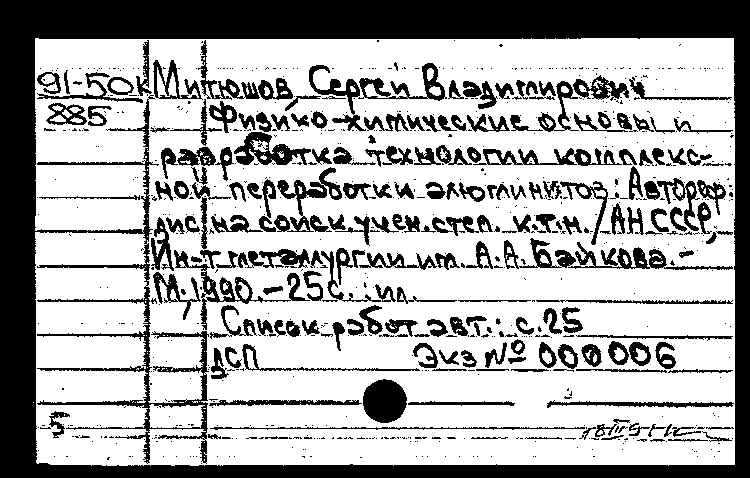 91-50к Митюшов, Сергей Владимирович
885 Физико-химические основы и
разработка технологии комплекс-
ной переработки алюминитов: Автореф.
дис. на соиск. учен. степ. к.т.н. / АН СССР,
Ин-т металлургии им. А.А. Байкова. -
М., 1990. - 25с. ил.
Список работ авт.: с.25
ДСП Экз № 000006
5